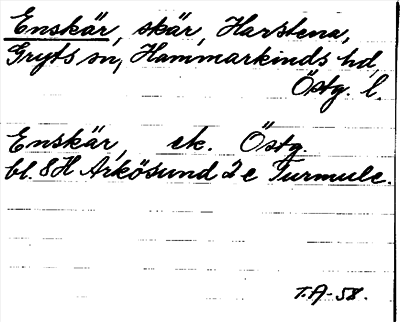 Enskär, skär, Harstena,
Gryts sn, Hammarkinds hd,
Östg. l.
Enskär, ek. Östg.
bl. 8H Arkösund 2 e Turmulc.
T.A-58.